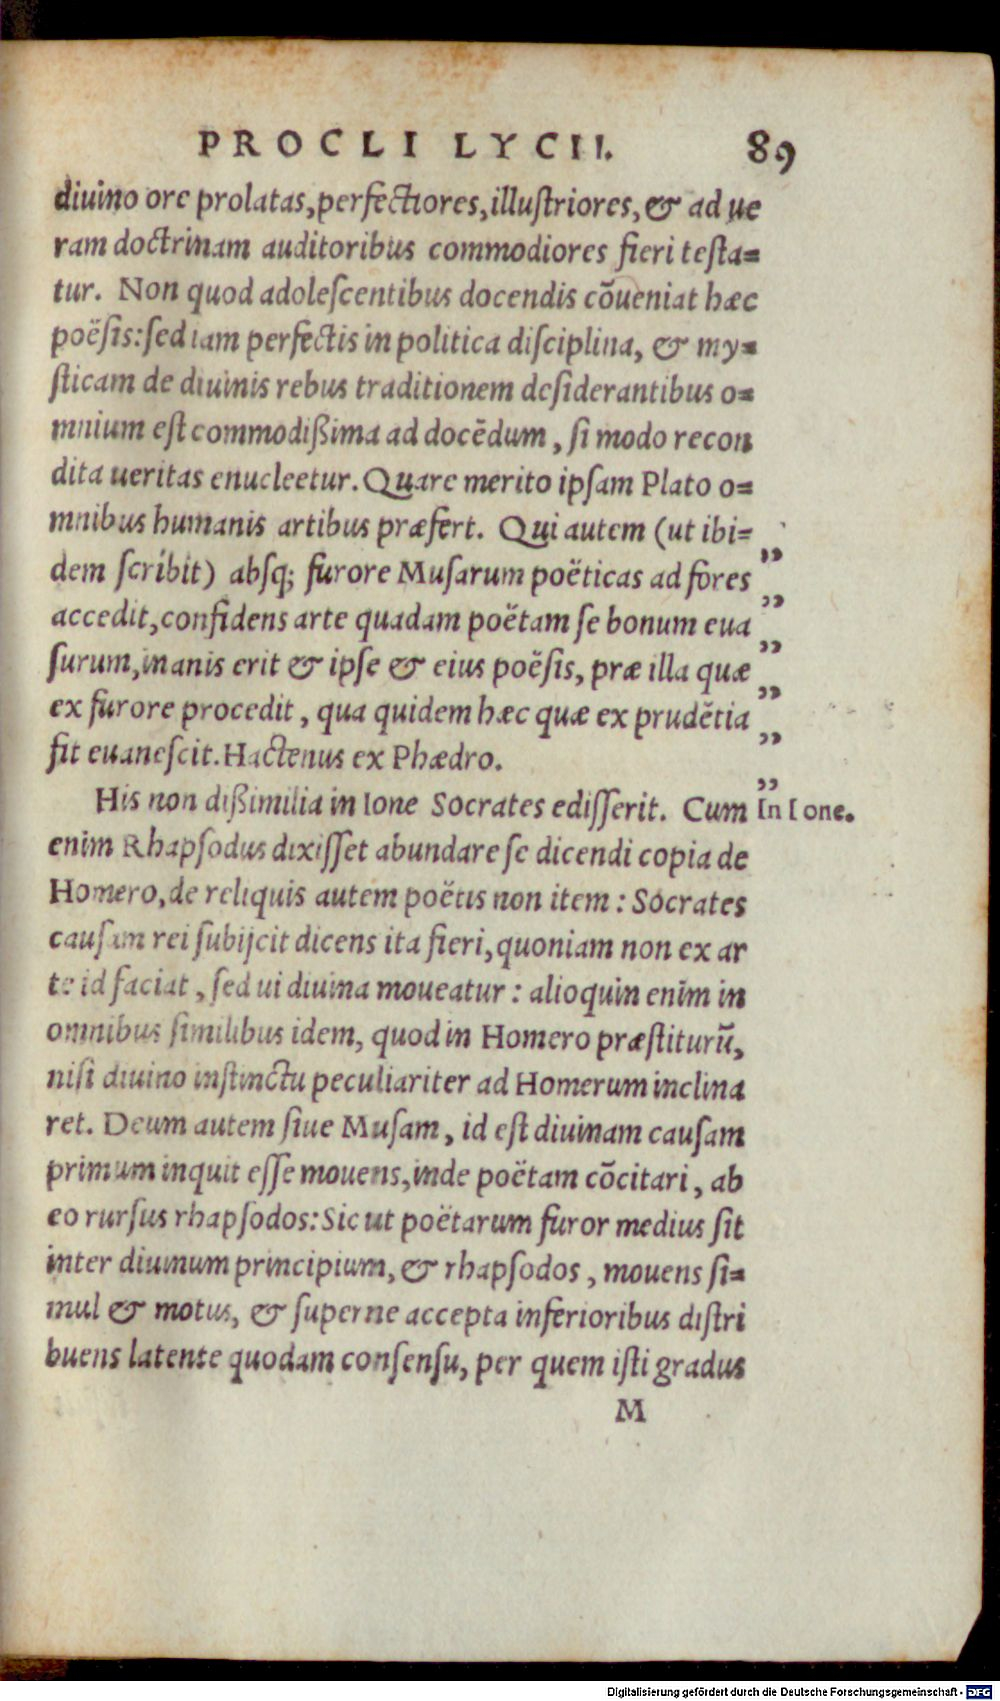 PROCLI LYCII. 89
diuino ore prolatas, perfectiores, illuſtriores, & ad ue
ram doctrinam auditoribus commodiores fieri teſta=
tur. Non quod adoleſcentibus docendis cõueniat hæc
poëſis: ſed iam perfectis in politica diſciplina, & my=
ſticam de diuinis rebus traditionem deſiderantibus o=
mnium eſt commodißima ad docẽdum, ſi modo recon
dita ueritas enucleetur. Quare merito ipſam Plato o=
mnibus humanis artibus præfert. Qui autem (ut ibi=
dem ſcribit) abſq; furore Muſarum poëticas ad fores „
accedit, confidens arte quadam poëtam ſe bonum eua „
ſurum, inanis erit & ipſe & eius poëſis, præ illa quæ „
ex furore procedit, qua quidem hæc quæ ex prudẽtia „
fit euaneſcit. Hactenus ex Phædro. „
„
His non dißimilia in Ione Socrates ediſſerit. Cum In Ione.
enim Rhapſodus dixiſſet abundare ſe dicendi copia de
Homero, de reliquis autem poëtis non item: Socrates
cauſam rei ſubijcit dicens ita fieri, quoniam non ex ar
te id faciat, ſed ui diuina moueatur: alioquin enim in
omnibus ſimilibus idem, quod in Homero præſtiturũ,
niſi diuino inſtinctu peculiariter ad Homerum inclina
ret. Deum autem ſiue Muſam, id eſt diuinam cauſam
primum inquit eſſe mouens, inde poëtam cõcitari, ab
eo rurſus rhapſodos: Sic ut poëtarum furor medius ſit
inter diuinum principium, & rhapſodos, mouens ſi=
mul & motus, & ſuperne accepta inferioribus diſtri
buens latente quodam conſenſu, per quem iſti gradus
M
Digitalisierung gefördert durch die Deutsche Forschungsgemeinschaft - DFG